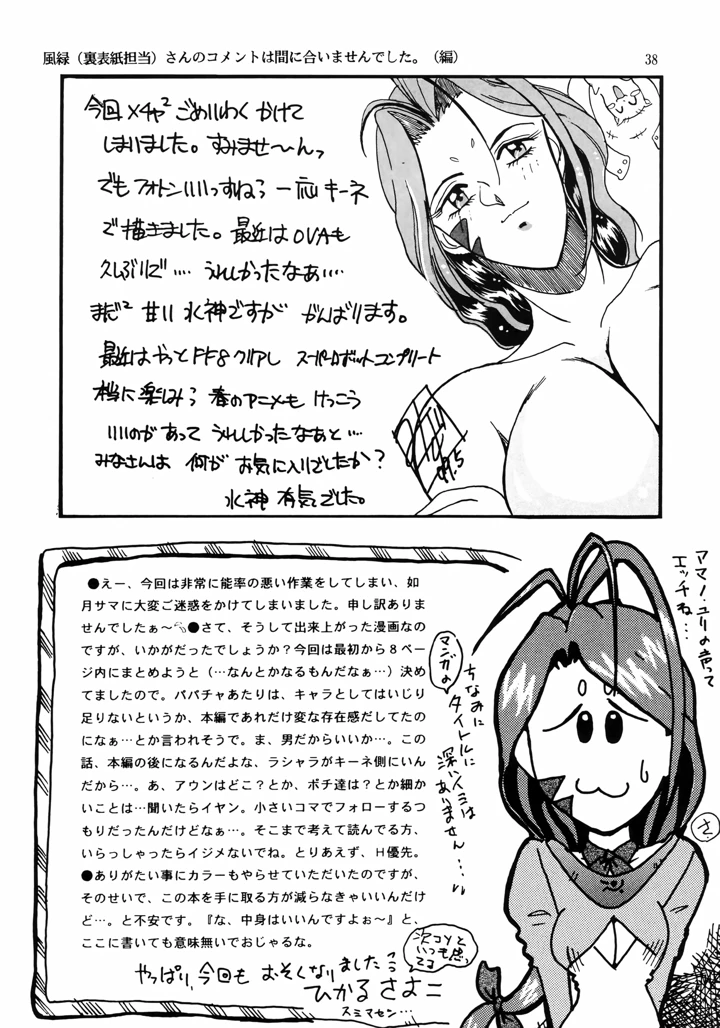 風緑（裏表紙担当）さんのコメントは間に合いませんでした。（編）
38
今回 メチャ² ごめいわく かけて
しまいました。すみませ〜んっ
でもフォトンいいっすね？ 一応 キーネ
で描きました。最近は OVAも
久しぶりで‥‥ うれしかったなぁ‥‥
まだ² 甘い 水神ですが がんばります。
最近はやっとFF8クリアし スーパーロボットコンプリート
楽しみ？ 春のアニメも けっこう
いいのがあって うれしかったなあと‥‥
みなさんは 何が お気に入りでしたか？
水神 有気でした。
99.5
●えー、今回は非常に能率の悪い作業をしてしまい、如
月サマに大変ご迷惑をかけてしまいました。申し訳ありま
せんでしたぁ〜●さて、そうして出来上がった漫画なの
ですが、いかがだったでしょうか？今回は最初から８ペー
ジ内にまとめようと（…なんとかなるもんだなぁ…）決め
てましたので。パパチャあたりは、キャラとしてはいじり
足りないというか、本編であれだけ変な存在感だしてたの
になぁ…とか言われそうで。ま、男だからいいか…。この
話、本編の後になるんだよな、ラシャラがキーネ側にいん
だから…。あ、アウンはどこ？とか、ポチ達は？とか細か
いことは…聞いたらイヤン。小さいコマでフォローするつ
もりだったんだけどなぁ…。そこまで考えて読んでる方、
いらっしゃったらイジメないでね。とりあえず、Ｈ優先。
●ありがたい事にカラーもやらせていただいたのですが、
そのせいで、この本を手に取る方が減らなきゃいいんだけ
ど…。と不安です。『な、中身はいいんですよぉ〜』と、
ここに書いても意味無いでおじゃるな。
やっぱり、今回も おそくなりました
次コソと
いつも思っ
てる
ひかるさよこ
スミマセン…
アマノ・ユリの声って
エッチね…
ちなみに
マンガの
タイトルに
深いイミは
ありません…
さ